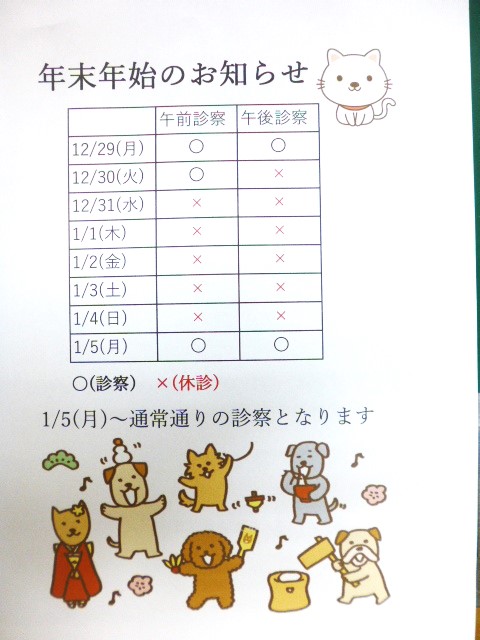 年末年始のお知らせ
午前診察 午後診察
12/29(月) ○ ○
12/30(火) ○ ×
12/31(水) × ×
1/1(木) × ×
1/2(金) × ×
1/3(土) × ×
1/4(日) × ×
1/5(月) ○ ○
○(診察) ×(休診)
1/5(月)～通常通りの診察となります